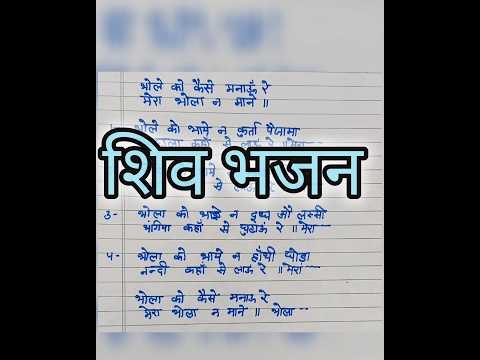 भोले को कैसे मनाऊँ रे
मेरा भोला न माने ॥
भोले को भाये न कुर्ता पैजामा
कहाँ से लाऊ रे ॥ मेरा
शिव भजन
से
३- भोला को भाये न दूध औ लस्सी
भंगिया कहाँ से रे ॥ मेरा
४- भोला को भाये न हाँथी घोड़ा
नन्दी कहाँ से लाऊ रे ॥ मेरा
भोला को कैसे मनाऊ रे
मेरा भोला न माने ॥ भोला